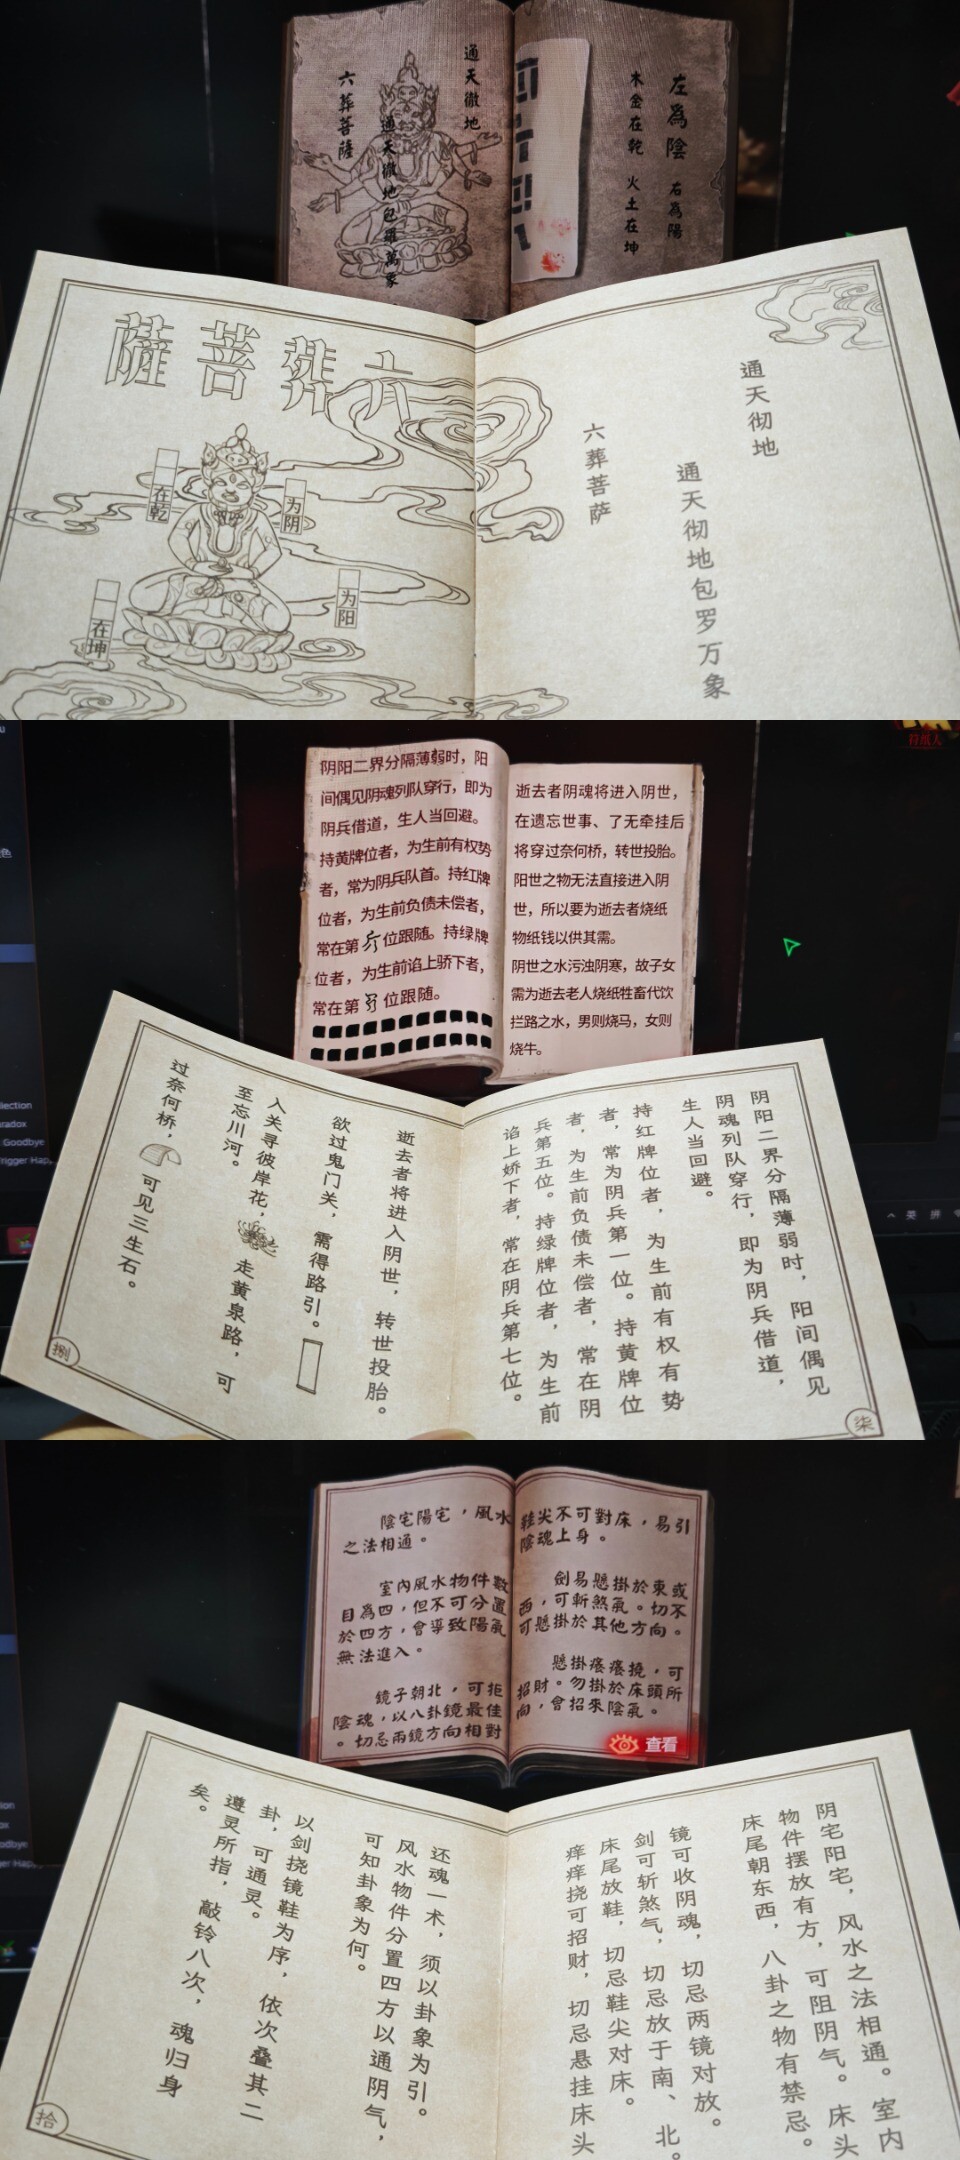 通天徹地
通天徹地包羅萬象
六葬菩薩
左爲陰 右爲陽
木金在乾 火土在坤
薩菩葬六
在乾
为阴
在坤
为阳
通天彻地
通天彻地包罗万象
六葬菩萨
符纸人
阴阳二界分隔薄弱时，阳
间偶见阴魂列队穿行，即为
阴兵借道，生人当回避。
持黄牌位者，为生前有权势
者，常为阴兵队首。持红牌
位者，为生前负债未偿者，
常在第 位跟随。持绿牌
位者，为生前谄上骄下者，
常在第 位跟随。
逝去者阴魂将进入阴世，
在遗忘世事、了无牵挂后
将穿过奈何桥，转世投胎。
阳世之物无法直接进入阴
世，所以要为逝去者烧纸
物纸钱以供其需。
阴世之水污浊阴寒，故子女
需为逝去老人烧纸牲畜代饮
拦路之水，男则烧马，女则
烧牛。
llection
aradox
Goodbye
Trigger Hap
英 拼
阴阳二界分隔薄弱时，阳间偶见
阴魂列队穿行，即为阴兵借道，
生人当回避。
持红牌位者，为生前有权有势
者，常为阴兵第一位。持黄牌位
者，为生前负债未偿者，常在阴
兵第五位。持绿牌位者，为生前
谄上娇下者，常在阴兵第七位。
柒
逝去者将进入阴世，转世投胎。
欲过鬼门关，需得路引。
入关寻彼岸花，走黄泉路，可
至忘川河。
过奈何桥，可见三生石。
捌
陰宅陽宅，風水
之法相通。
室內風水物件數
目爲四，但不可分置
於四方，會導致陽氣
無法進入。
鏡子朝北，可拒
陰魂，以八卦鏡最佳
。切忌兩鏡方向相對
鞋尖不可對床，易引
陰魂上身。
劍易懸掛於東或
西，可斬煞氣。切不
可懸掛於其他方向。
懸掛癢癢撓，可
招財。勿掛於床頭所
向，會招來陰氣。
查看
阴宅阳宅，风水之法相通。室内
物件摆放有方，可阻阴气。床头
床尾朝东西，八卦之物有禁忌。
镜可收阴魂，切忌两镜对放。
剑可斩煞气，切忌放于南、北。
床尾放鞋，切忌鞋尖对床。
痒痒挠可招财，切忌悬挂床头
还魂一术，须以卦象为引。
风水物件分置四方以通阴气，
可知卦象为何。
以剑挠镜鞋为序，依次叠其二
卦，可通灵。
遵灵所指，敲铃八次，魂归身
矣。
拾